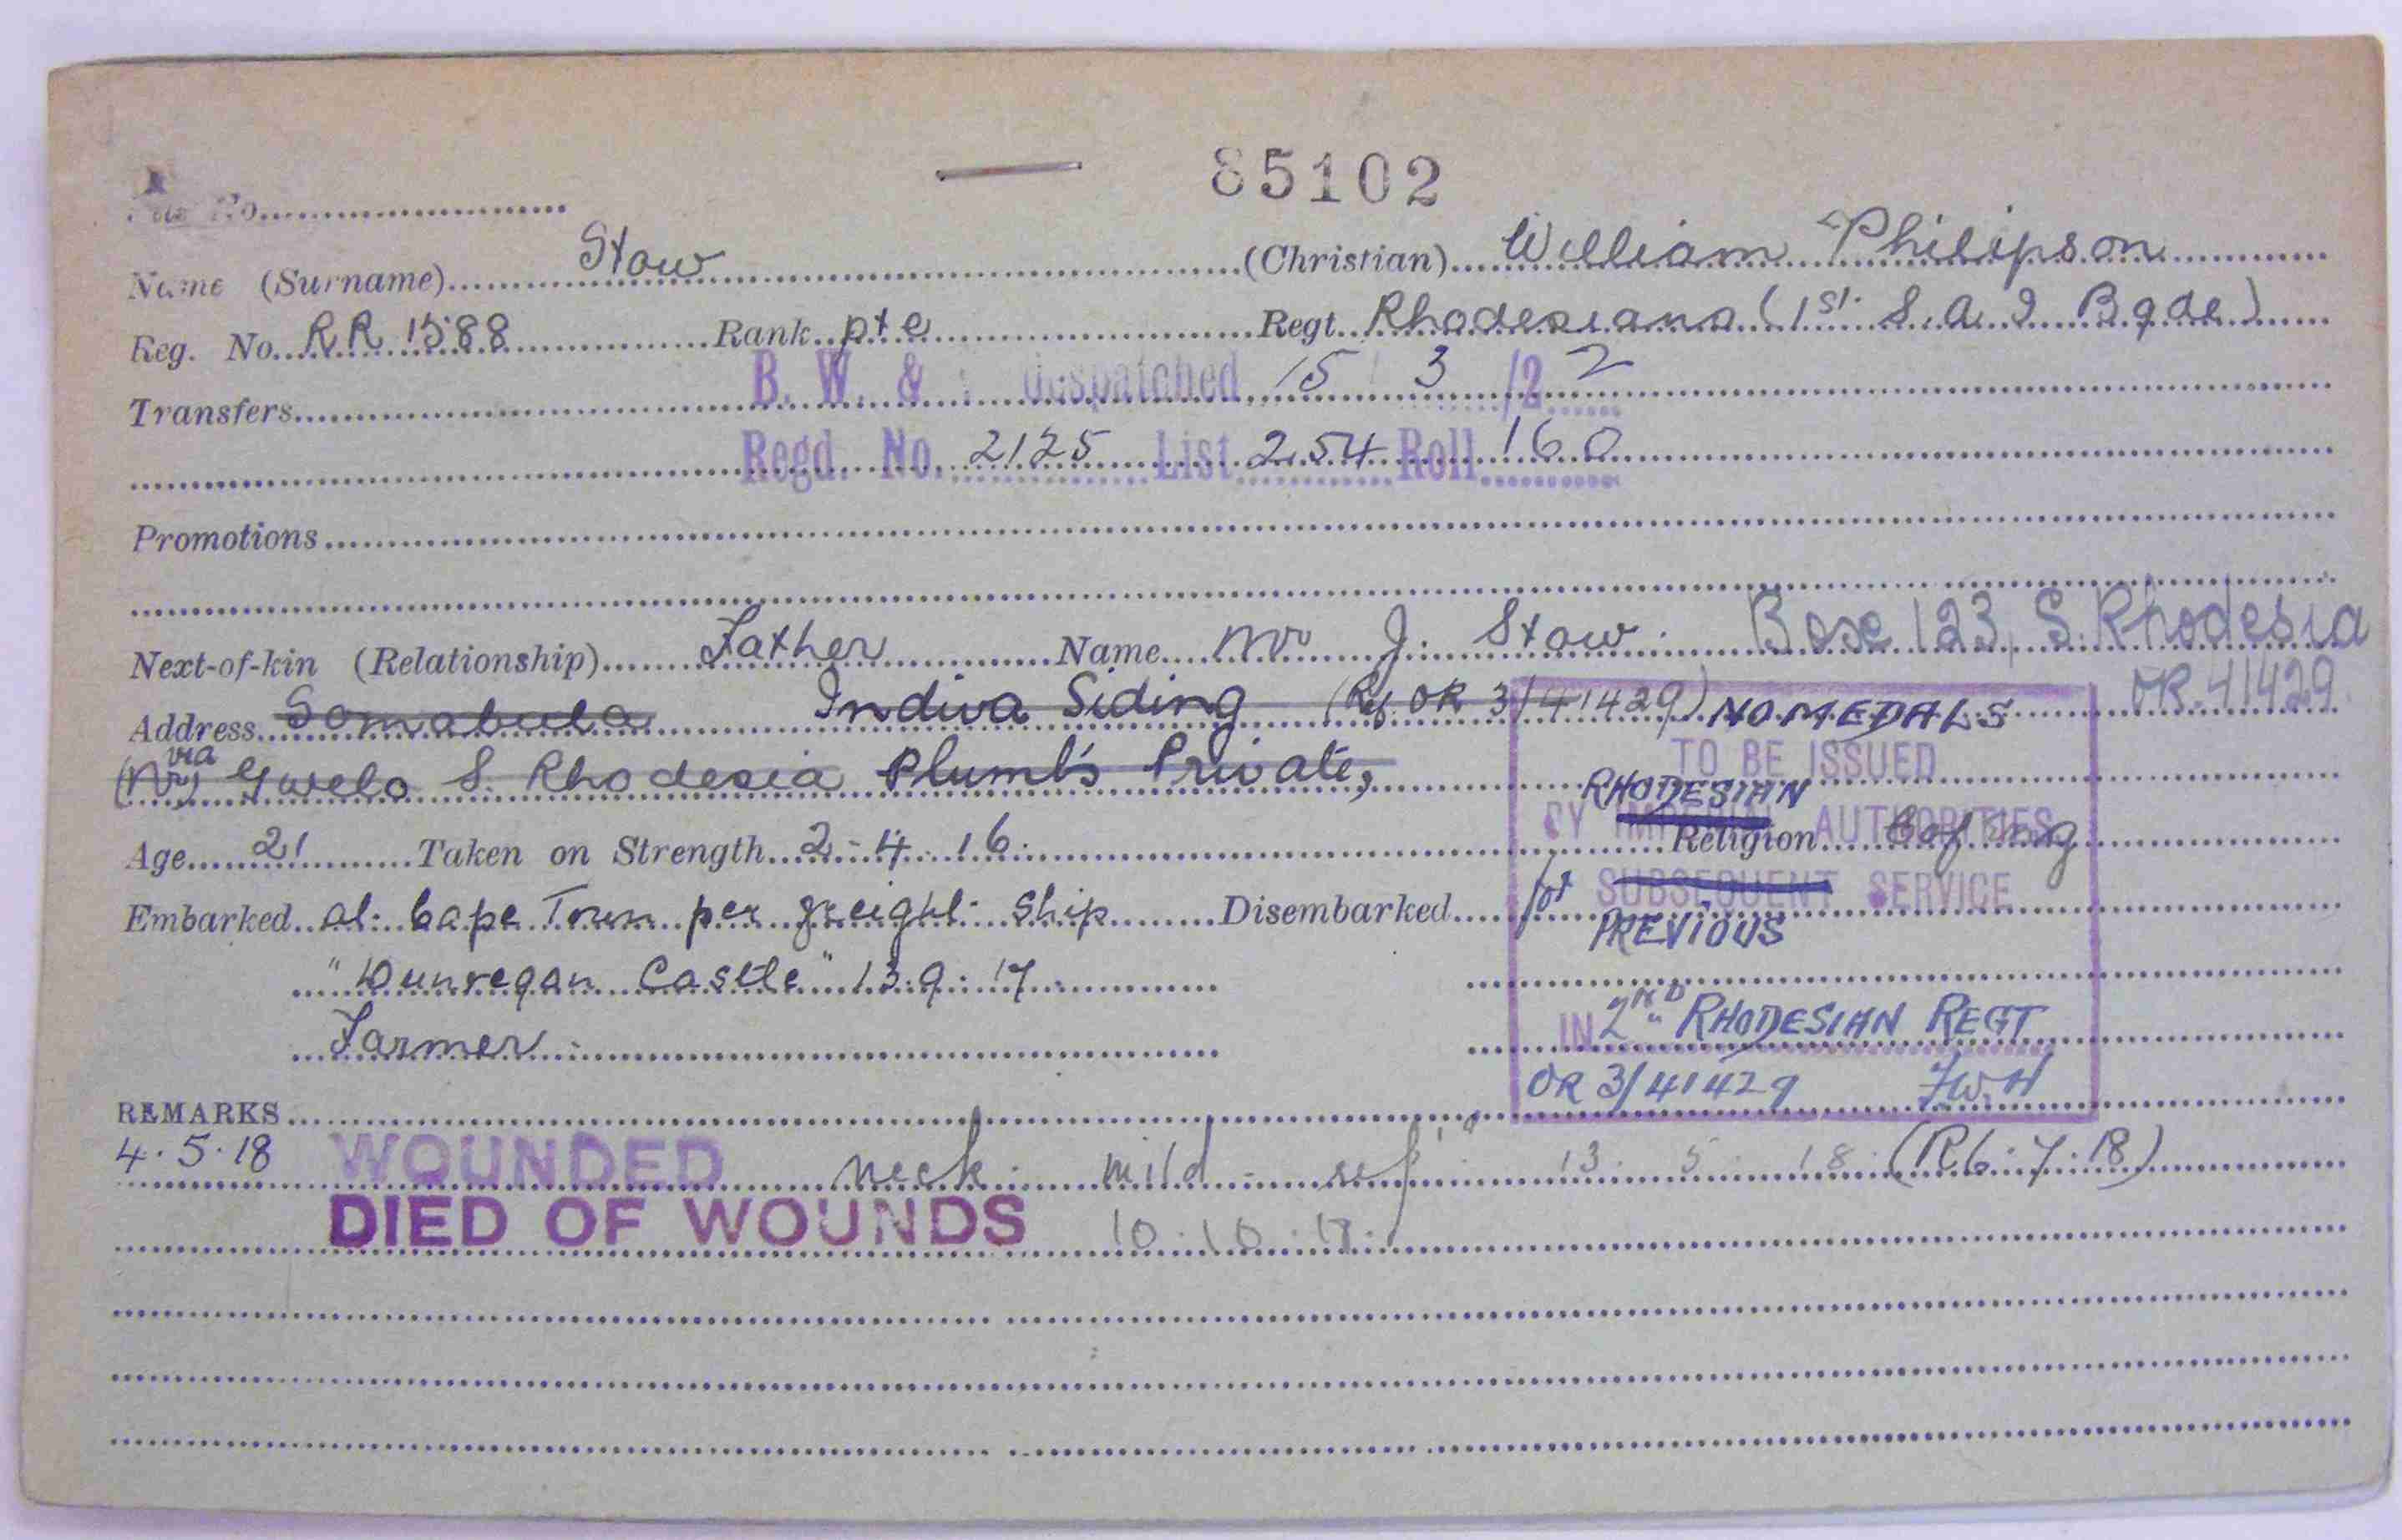 85102
Name (Surname) Stow (Christian) William Philipson
Reg. No. RR 1588 Rank pte Regt. Rhodesians (1st S.A.I Bgde)
B. W. & despatched 15 3 /22
Transfers
Regd. No. 2125 List 254 Roll 160
Promotions
Next-of-kin (Relationship) Father Name Mr J. Stow. Box 123, S. Rhodesia
Address Somabula Indiva Siding (Ref OR 3/41429) NO MEDALS OR. 41429
TO BE ISSUED
(Nr) via Gwelo S. Rhodesia Plumb's Private,
RHODESIAN
BY IMPERIAL AUTHORITIES
Age 21 Taken on Strength 2.4.16 Religion C of Eng
for SUBSEQUENT SERVICE
Embarked at Cape Town per freight ship Disembarked
PREVIOUS
"Dunvegan Castle" 13.9.17
IN 2ND RHODESIAN REGT
Farmer
OR 3/41429 F.W.H
REMARKS
4.5.18 WOUNDED neck mild 13 5 18 (R6.7.18)
DIED OF WOUNDS 10.10.18